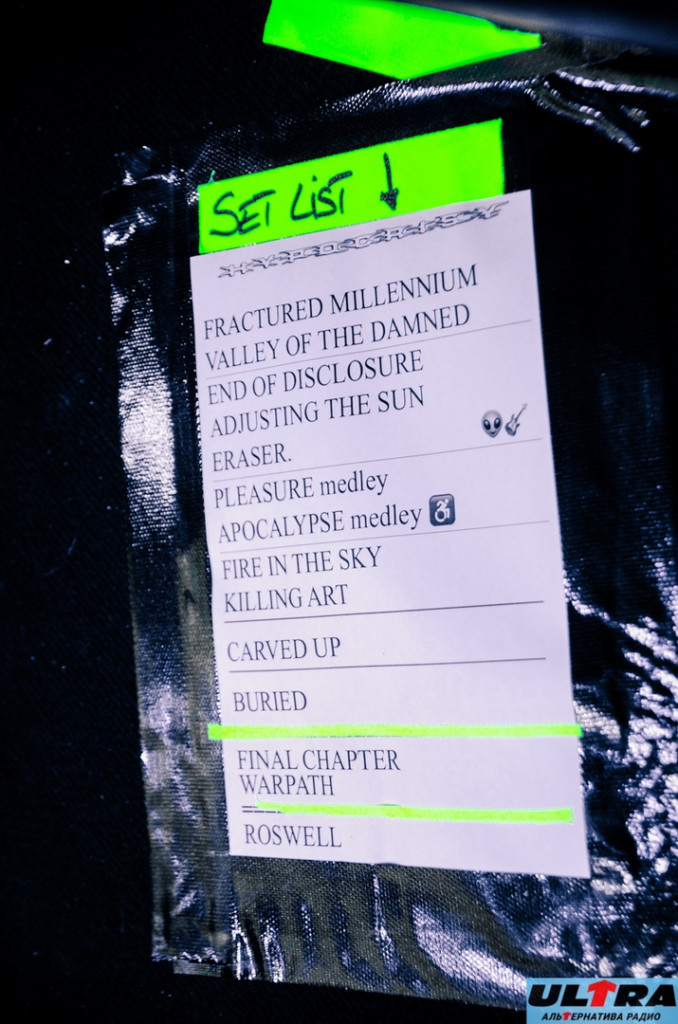 SET LIST
HYPOCRISY
FRACTURED MILLENNIUM
VALLEY OF THE DAMNED
END OF DISCLOSURE
ADJUSTING THE SUN
ERASER.
PLEASURE medley
APOCALYPSE medley
FIRE IN THE SKY
KILLING ART
CARVED UP
BURIED
FINAL CHAPTER
WARPATH
ROSWELL
ULTRA
АЛЬТЕРНАТИВА РАДИО